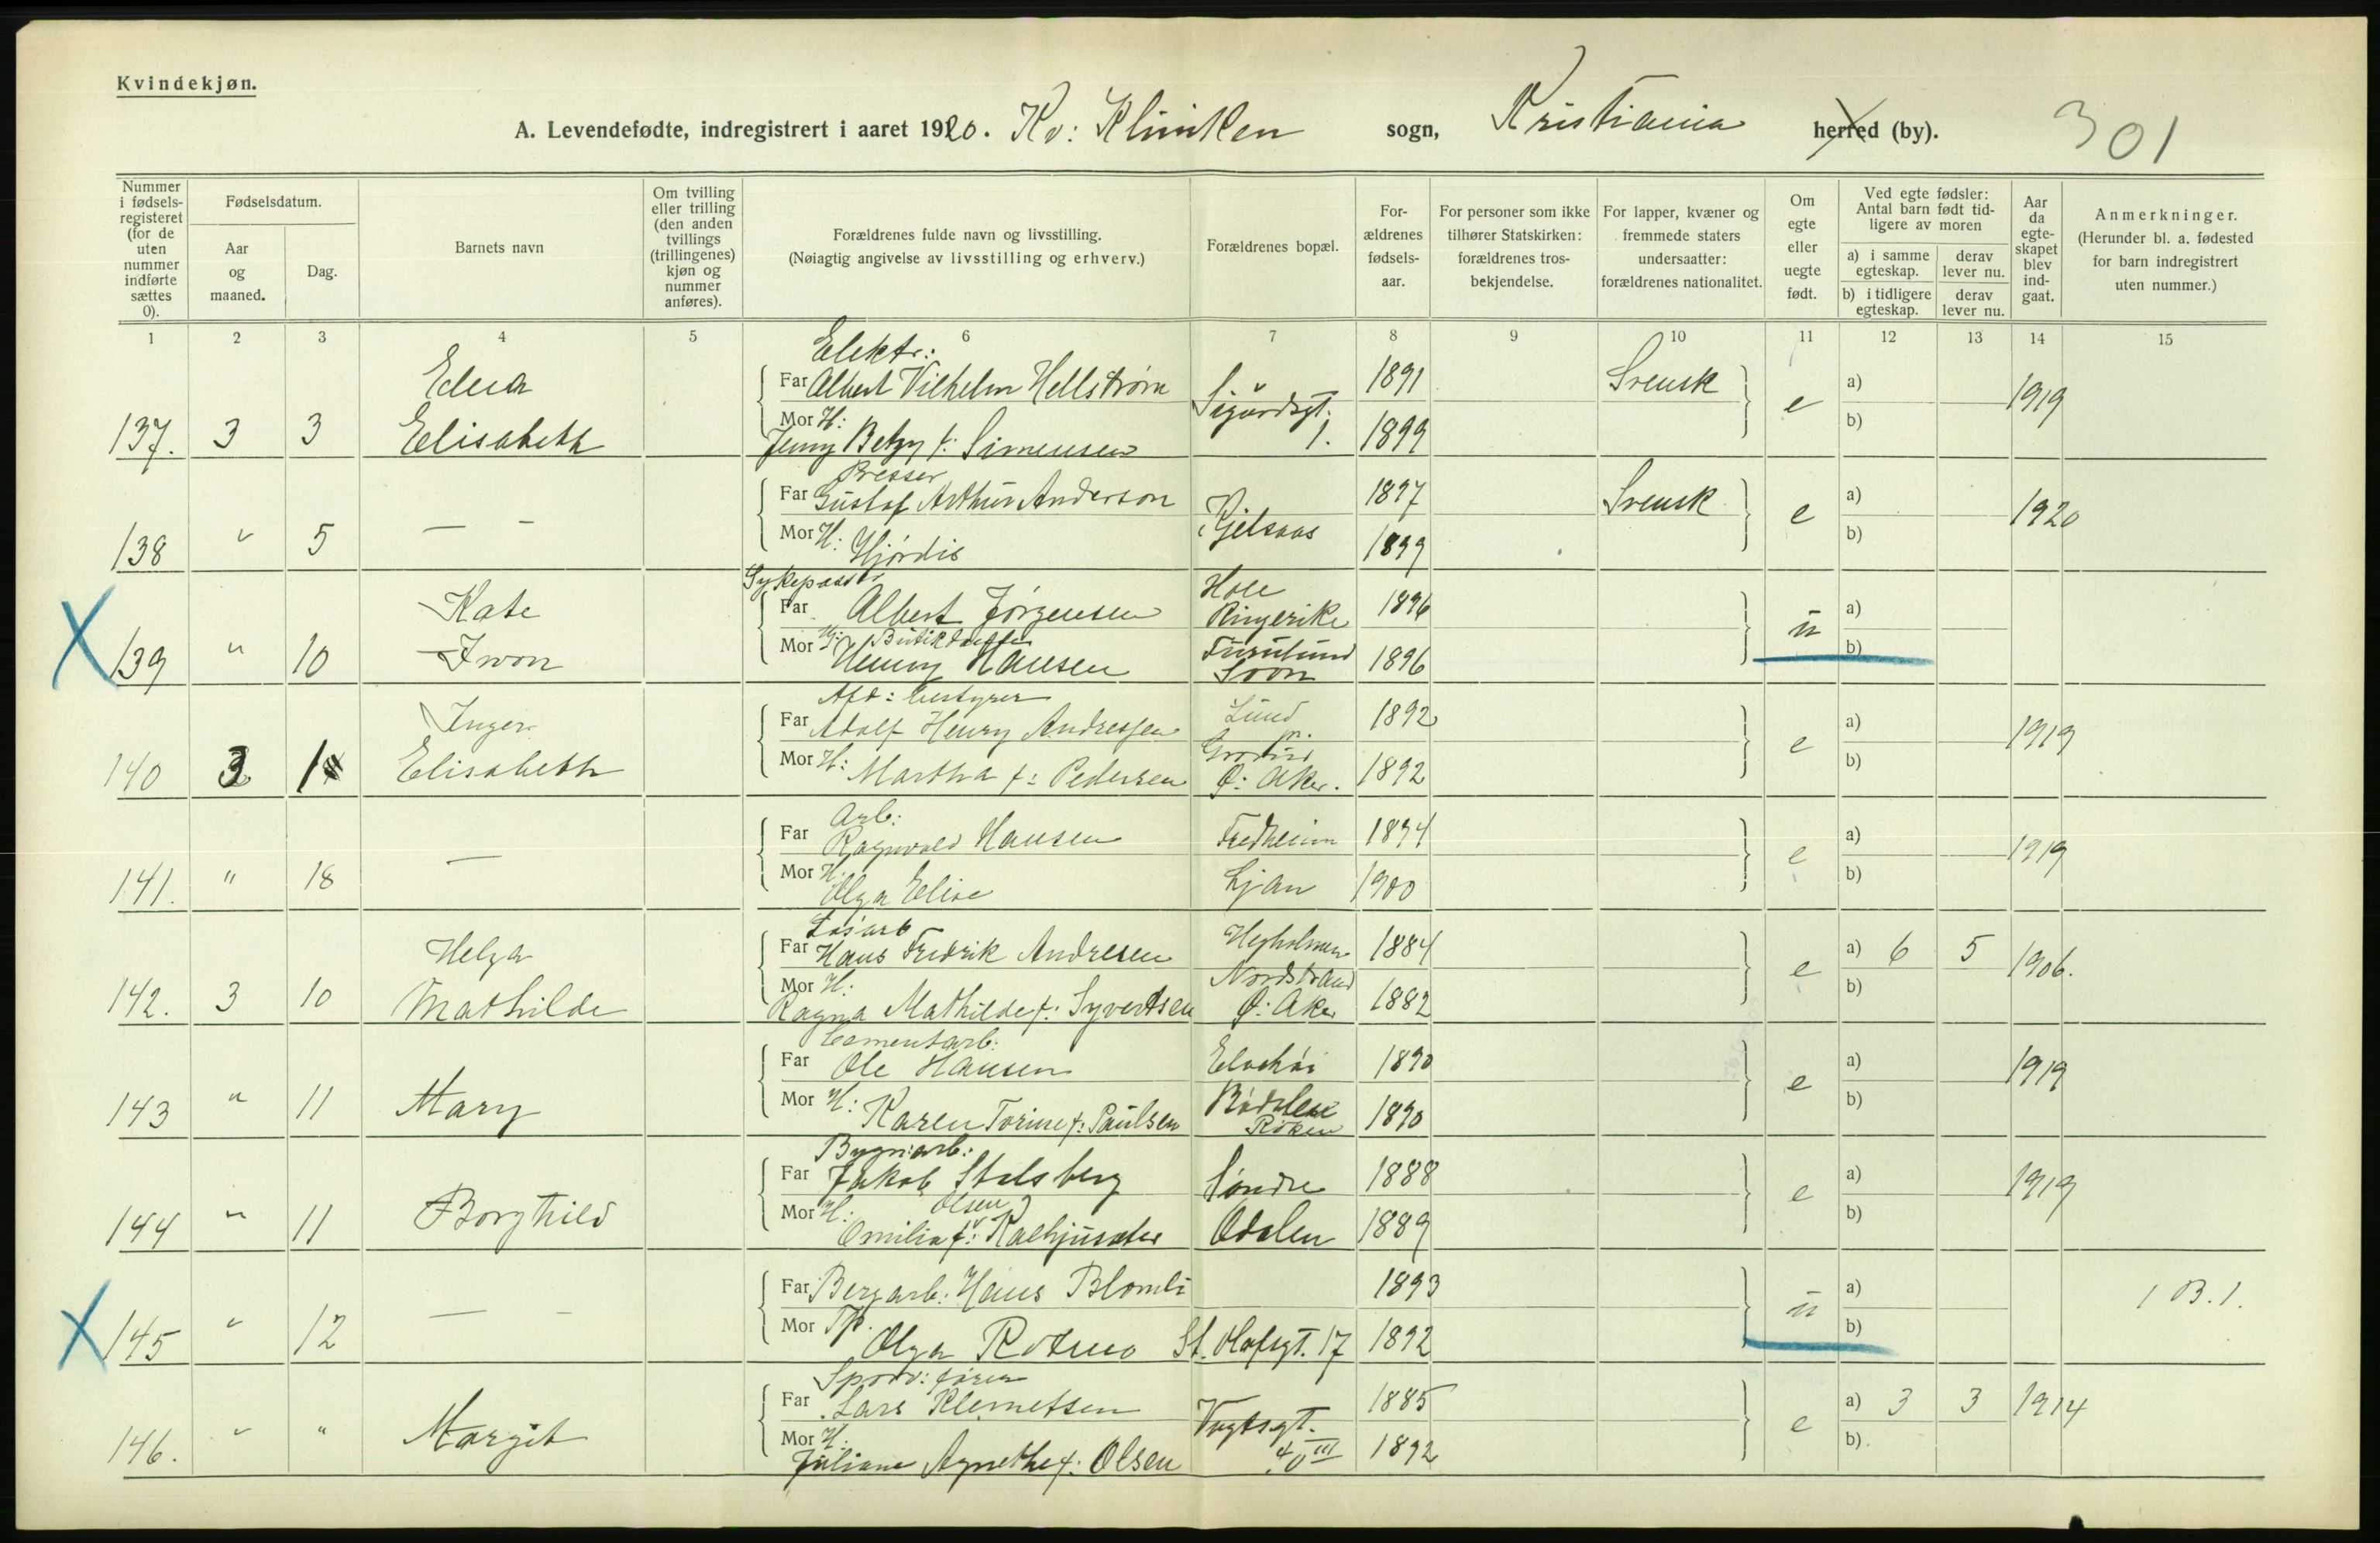 Kvindekjøn.
A. Levendefødte, indregistrert i aaret 1920. Kv: Klinikken sogn, Kristiania herred (by). 301
Nummer i fødsels-registeret (for de uten nummer indførte sættes 0).
Fødselsdatum.
Aar og maaned.
Dag.
Barnets navn
Om tvilling eller trilling (den anden tvillings (trillingenes) kjøn og nummer anføres).
Forældrenes fulde navn og livsstilling.
(Nøiagtig angivelse av livsstilling og erhverv.)
Forældrenes bopæl.
For-ældrenes fødsels-aar.
For personer som ikke tilhører Statskirken: forældrenes tros-bekjendelse.
For lapper, kvæner og fremmede staters undersaatter: forældrenes nationalitet.
Om egte eller uegte født.
Ved egte fødsler: Antal barn født tid-ligere av moren
a) i samme egteskap.
derav lever nu.
b) i tidligere egteskap.
derav lever nu.
Aar da egte-skapet blev ind-gaat.
Anmerkninger.
(Herunder bl. a. fødested for barn indregistrert uten nummer.)
1 2 3 4 5 6 7 8 9 10 11 12 13 14 15
Elektr.:
Edua Far Albert Vilhelm Hellstrøm Sigurdsgt. 1891 Svensk e a) 1919
137. 3 3 Elisabeth Mor H: Jenny Betzy f: Simensen 1. 1899 b)
Presser
Far Gustaf Arthur Anderson Kjelsaas 1897 Svensk e a) 1920
138 " 5 — — Mor H: Hjørdis 1899 b)
Sykepasser Hole
Kate Far Albert Jørgensen Ringerike 1896 u a)
X 139 " 10 Iwon Mor Butikdame Henny Hansen Furulund Soon 1896 b)
Afd: bestyrer
Inger Far Adolf Henry Andressen Lund pr. 1892 e a) 1919
140 3 1 Elisabeth Mor H: Martha f: Pedersen Grorud Ø: Aker. 1892 b)
Arb:
Far Ragnvald Hansen Fredheim 1894 e a) 1919
141. " 18 — Mor H. Olga Elise Ljan 1900 b)
Løsarb
Helga Far Hans Fredrik Andresen 1884 e a) 6 5 1906.
142. 3 10 Mathilde Mor H: Ragna Mathilde f: Syvertsen Nordstrand Ø: Aker 1882 b)
Cementarb:
Far Ole Hansen 1890 e a) 1919
143 " 11 Mary Mor H: Karen Torine f: Paulsen Bødalen Røken 1890 b)
Bygn:arb:
Far Jakob Stalsberg Søndre 1888 e a) 1919
Olsen
144 " 11 Borghild Mor H: Omilia f: Odalen 1889 b)
Far Bergarb: Hans Blomli 1893 u a) 1 B. 1.
X 145 " 12 — — Mor Tp. Olga Rotmo St. Olafsgt. 17 1892 b)
Sporv: fører
Far Lars Klemetsen Vogtsgt. 1885 e a) 3 3 1914
146. " " Margit Mor H. Juliane Agnethe f: Olsen 40 III 1892 b)